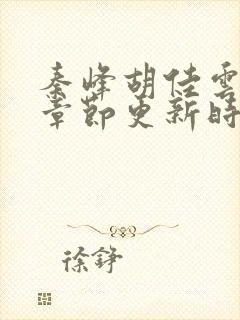 秦峰胡佳雲
章節更新時
徐錚